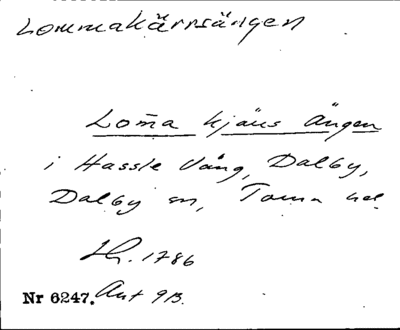 Lommakärrsängen
Lom̄a kjärs Ängen
i Hassle Vång, Dalby,
Dalby sn, Torna hd.
LH. 1786
Nr 6247. Avt 913.